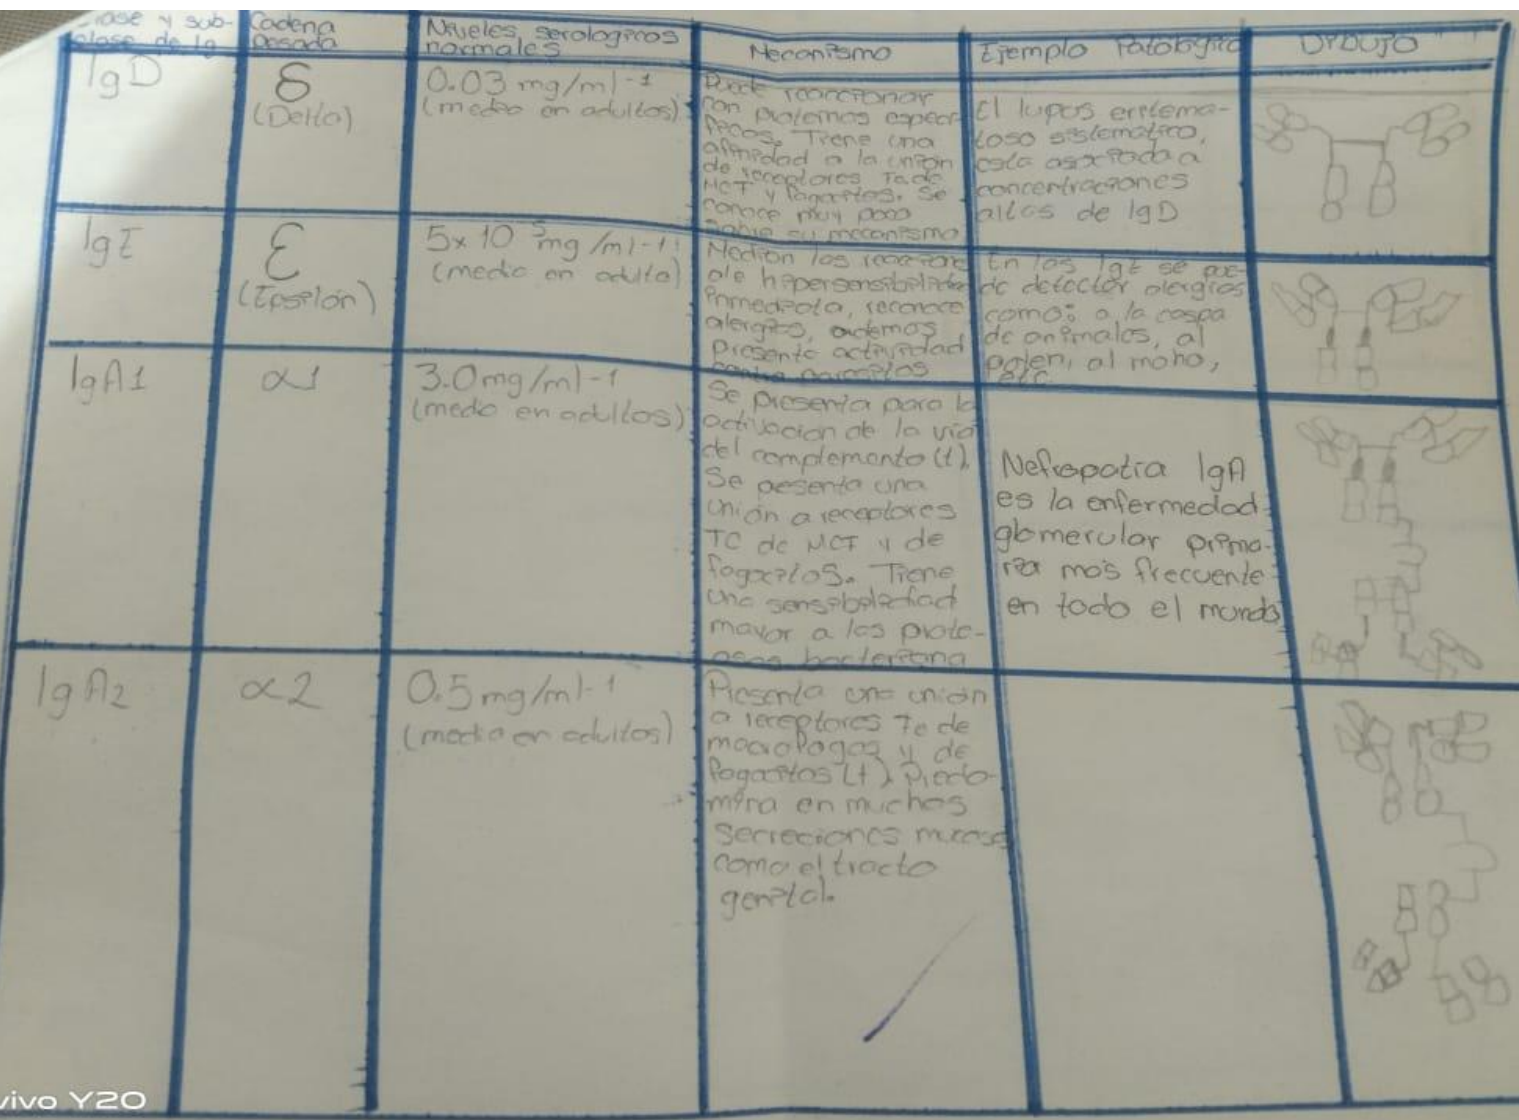 clase y sub-
clase de Ig
Cadena
pesada
Niveles serologicos
normales
Mecanismo
Ejemplo Patologico
Dibujo
IgD
δ
(Delta)
0.03 mg/ml-1
(medio en adultos)
Puede reaccionar
con proteinas especi-
ficas. Tiene una
afinidad a la unión
de receptores
MCF y fagocitos. Se
conoce muy poco
sobre su mecanismo
El lupus eritema-
toso sistematico,
esta asociada a
concentraciones
altas de IgD
IgE
ε
(Epsilon)
5x10-5 mg/ml-1
(medio en adulto)
Median las reacciones
de hipersensibilidad
inmediata, reconoce
alergias, ademas
presenta actividad
contra parasitos
En las IgE se pue-
de detectar alergias
como: a la caspa
de animales, al
polen, al moho,
etc
IgA1
α1
3.0mg/ml-1
(medio en adultos)
Se presenta para la
activación de la via
del complemento (t).
Se pesenta una
Unión a receptores
TC de MCF y de
fagocitos. Tiene
una sensibilidad
mayor a las prote-
asas bacteriana
Nefropatia IgA
es la enfermedad
glomerular prima-
ria más frecuente
en todo el mundo
IgA2
α2
0.5 mg/ml-1
(medio en adultos)
Presenta una unión
a receptores Tc de
macrofagos y de
fagocitos (t). Predo-
mina en muchas
secreciones mucosas
como el tracto
genital.
vivo Y20